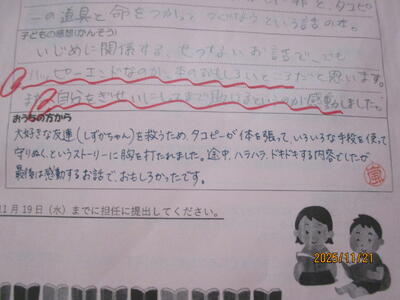 一の道具と命をつかって
という話の本。
子どもの感想(かんそう)
いじめに関係する、せつないお話で、でも
ハッピーエンドなのが、本のおもしろいところだと思います。
また自分をぎせいにしてまで助けるというのが感動しました。
おうちの方から
大好きな友達(しずかちゃん)を救うため、タコピーが体を張って、いろいろな手段を使って
守りぬく、というストーリーに胸を打たれました。途中、ハラハラ、ドキドキする内容でしたが
最後は感動するお話で、おもしろかったです。
11月19日(水)までに担任に提出してください。
2025/11/21